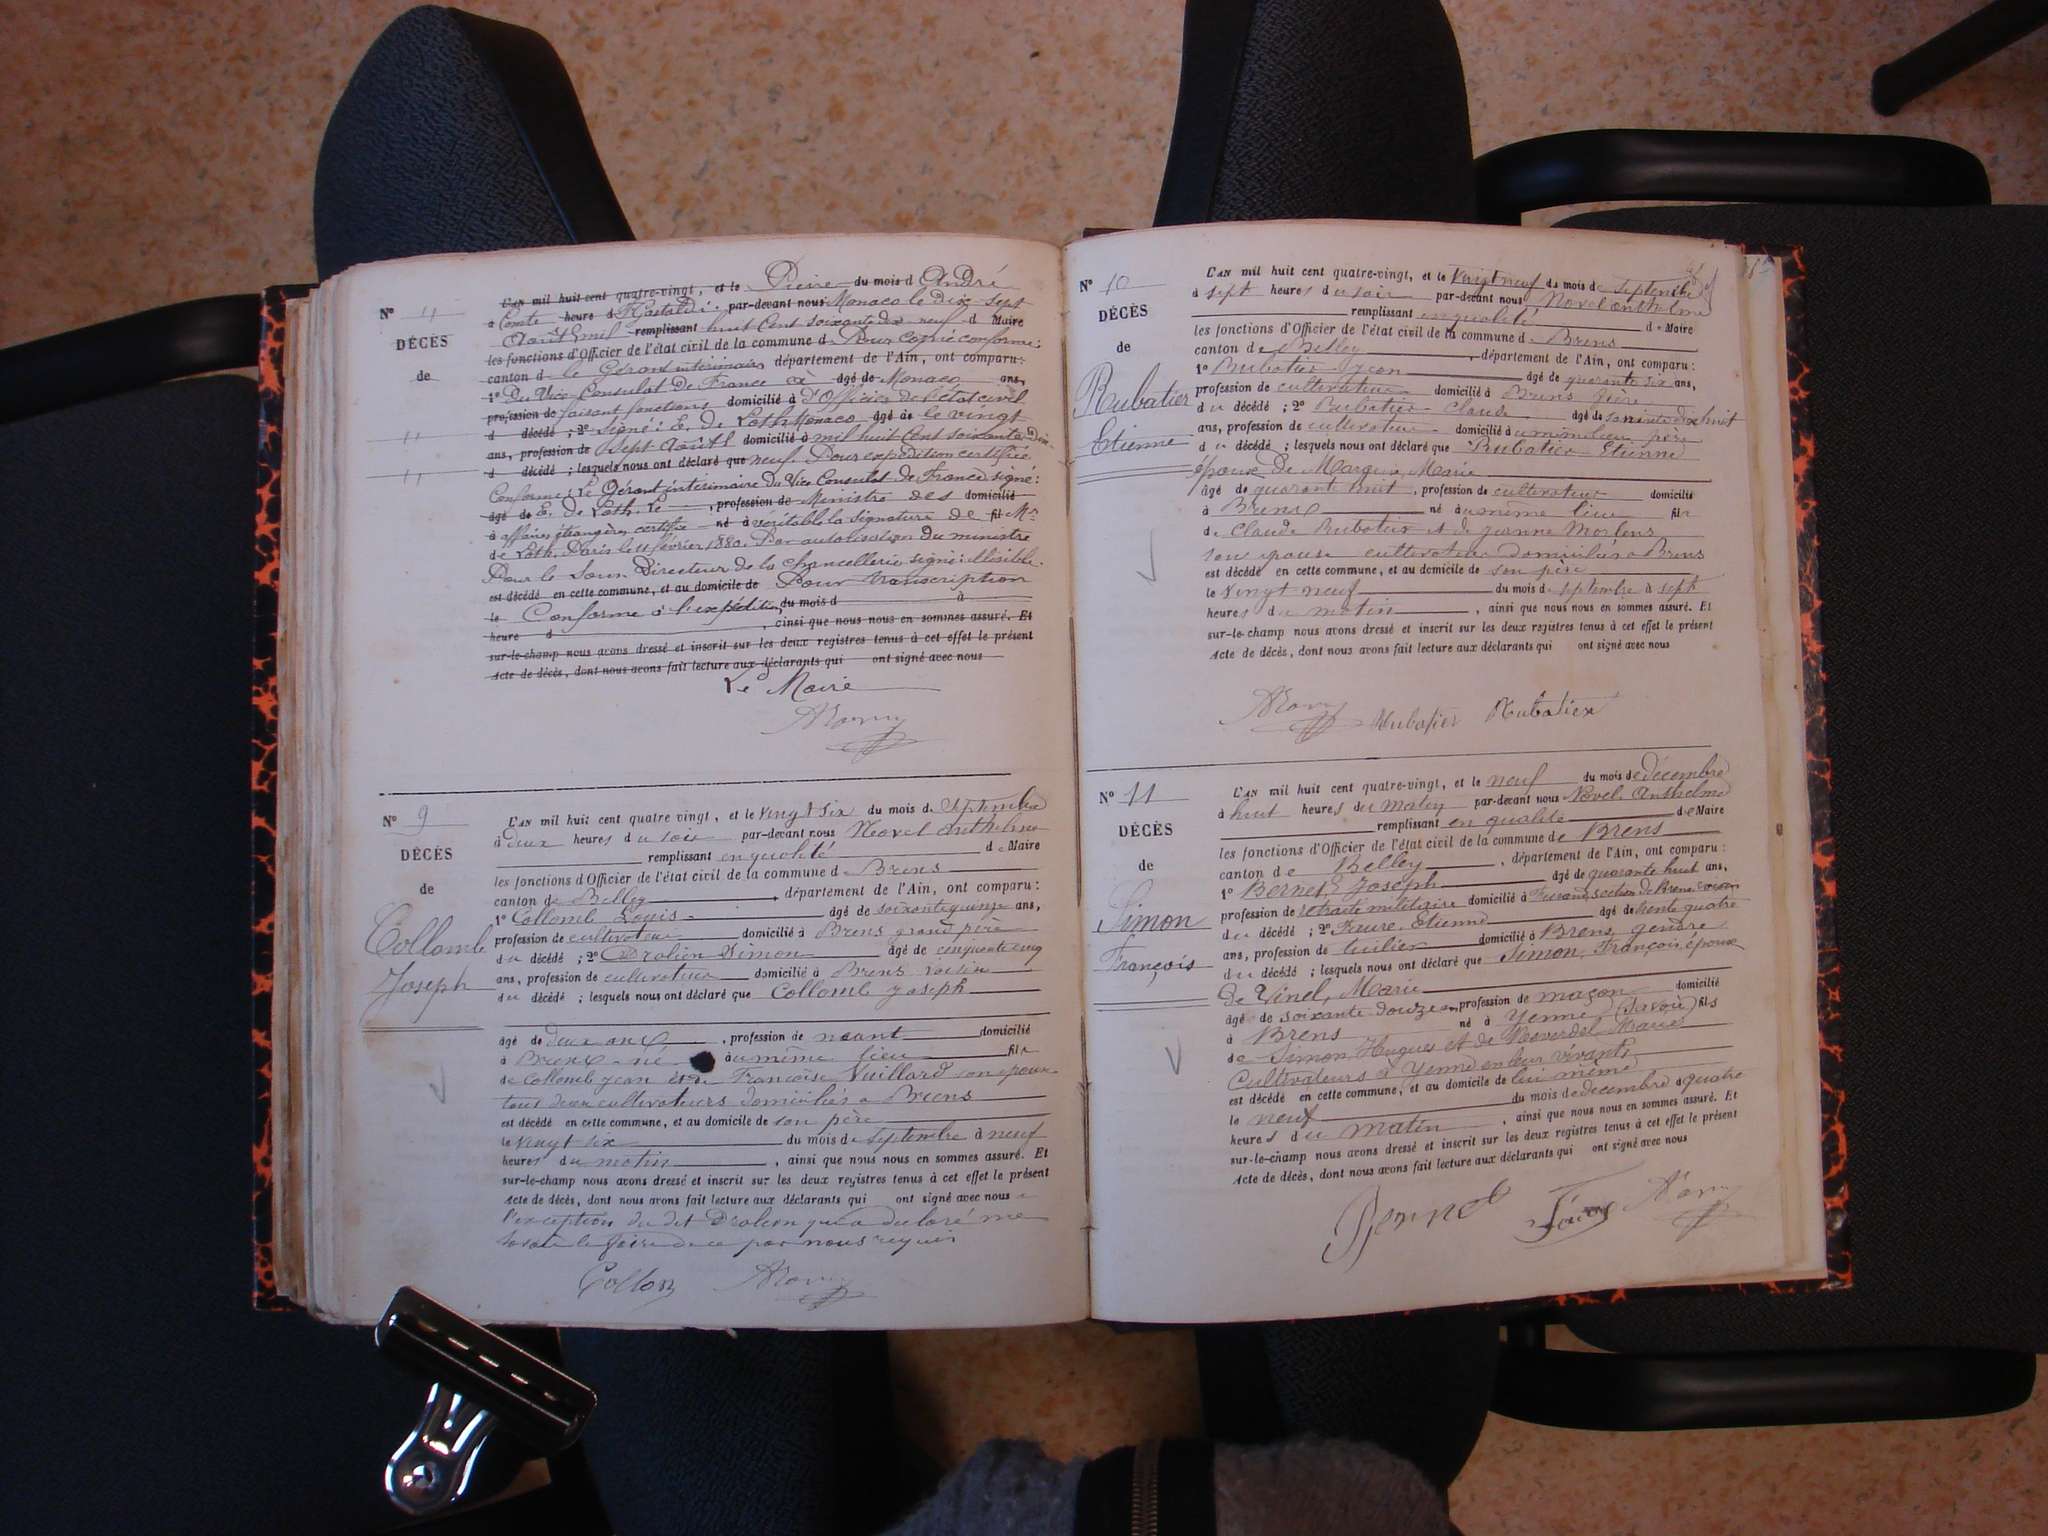 N° 11
DÉCÈS
de
L'AN mil huit cent quatre-vingt, et le Pierre du mois d André
à Comte heure d Gastaldi. par-devant nous Monaco le dix sept
Août Emil remplissant huit Cent soixante dix neuf d Maire
les fonctions d'Officier de l'état civil de la commune d Pour copie conforme:
canton d le Gérant intérimaire département de l'Ain, ont comparu:
1° Du Vice Consulat de France à âgé de Monaco ans,
profession de faisant fonctions domicilié à D'Officier de l'état civil
d décédé ; 2° Signé: E. de Loth Monaco âgé de le vingt
ans, profession de sept Août domicilié à mil huit Cent soixante Dix-
d décédé ; lesquels nous ont déclaré que neuf. Pour expédition certifiée
Conforme: Le Gérant intérimaire du Vice Consulat de France signé:
âgé de E. de Loth. Le , profession de Ministre des domicilié
à affaires étrangères certifie né à véritable la signature de fil Mr
de Loth. Paris le 11 février 1880. Par autorisation du ministre
Pour le Sous-Directeur de la chancellerie signé: illisible.
est décédé en cette commune, et au domicile de Pour transcription
le Conforme à l'expédition du mois d à
heure d , ainsi que nous nous en sommes assuré. Et
sur-le-champ nous avons dressé et inscrit sur les deux registres tenus à cet effet le présent
Acte de décès, dont nous avons fait lecture aux déclarants qui ont signé avec nous
Le Maire
N° 9
DÉCÈS
de
Collomb
Joseph
L'AN mil huit cent quatre vingt, et le Vingt six du mois de Septembre
à deux heures du soir par-devant nous Novel Anthelme
remplissant en qualité de Maire
les fonctions d'Officier de l'état civil de la commune de Brens
canton de Belley , département de l'Ain, ont comparu:
1° Collomb Louis âgé de soixante quinze ans,
profession de cultivateur domicilié à Brens grand père
du décédé ; 2° Dralien Simon âgé de cinquante cinq
ans, profession de cultivateur domicilié à Brens voisin
du décédé ; lesquels nous ont déclaré que Collomb Joseph
âgé de deux ans , profession de néant domicilié
à Brens né au même lieu fils
de Collomb Jean et de Françoise Vuillard son épouse
tous deux cultivateurs domiciliés à Brens
est décédé en cette commune, et au domicile de son père
le Vingt six du mois de septembre à neuf
heures du matin , ainsi que nous nous en sommes assuré. Et
sur-le-champ nous avons dressé et inscrit sur les deux registres tenus à cet effet le présent
Acte de décès, dont nous avons fait lecture aux déclarants qui ont signé avec nous à
l'exception du dit Dralien qui a déclaré ne
savoir le faire de ce par nous requis
Collomb
N° 10
DÉCÈS
de
Rubatier
Etienne
L'AN mil huit cent quatre-vingt, et le Vingt neuf du mois de Septembre
à sept heures du soir par-devant nous Novel Anthelme
remplissant en qualité de Maire
les fonctions d'Officier de l'état civil de la commune de Brens
canton de Belley , département de l'Ain, ont comparu:
1° Rubatier Jean âgé de quarante six ans,
profession de cultivateur domicilié à Brens frère
du décédé ; 2° Rubatier Claude âgé de soixante dix huit
ans, profession de cultivateur domicilié à u même lieu père
du décédé ; lesquels nous ont déclaré que Rubatier Etienne
époux de Marie
âgé de quarante huit , profession de cultivateur domicilié
à Brens né à u même lieu fils
de Claude Rubatier et de Jeanne
son épouse cultivateurs domiciliés à Brens
est décédé en cette commune, et au domicile de son père
le Vingt neuf du mois de septembre à sept
heures du matin , ainsi que nous nous en sommes assuré. Et
sur-le-champ nous avons dressé et inscrit sur les deux registres tenus à cet effet le présent
Acte de décès, dont nous avons fait lecture aux déclarants qui ont signé avec nous
Rubatier Rubatier
N° 11
DÉCÈS
de
Simon
François
L'AN mil huit cent quatre-vingt, et le neuf du mois de décembre
à huit heures du matin par-devant nous Novel Anthelme
remplissant en qualité de Maire
les fonctions d'Officier de l'état civil de la commune de Brens
canton de Belley , département de l'Ain, ont comparu:
1° Bernet Joseph âgé de quarante huit ans,
profession de retraité militaire domicilié à section de Brens voisin
du décédé ; 2° Faure Etienne âgé de trente quatre
ans, profession de tuilier domicilié à Brens gendre
du décédé ; lesquels nous ont déclaré que Simon François époux
de Vinel, Marie
âgé de soixante douze ans, profession de maçon domicilié
à Brens né à Yenne (Savoie) fils
de Simon Hugues et de Marie
Cultivateurs à Yenne en leur vivant,
est décédé en cette commune, et au domicile de lui même
le neuf du mois de décembre à quatre
heures du matin , ainsi que nous nous en sommes assuré. Et
sur-le-champ nous avons dressé et inscrit sur les deux registres tenus à cet effet le présent
Acte de décès, dont nous avons fait lecture aux déclarants qui ont signé avec nous
Bernet Faure